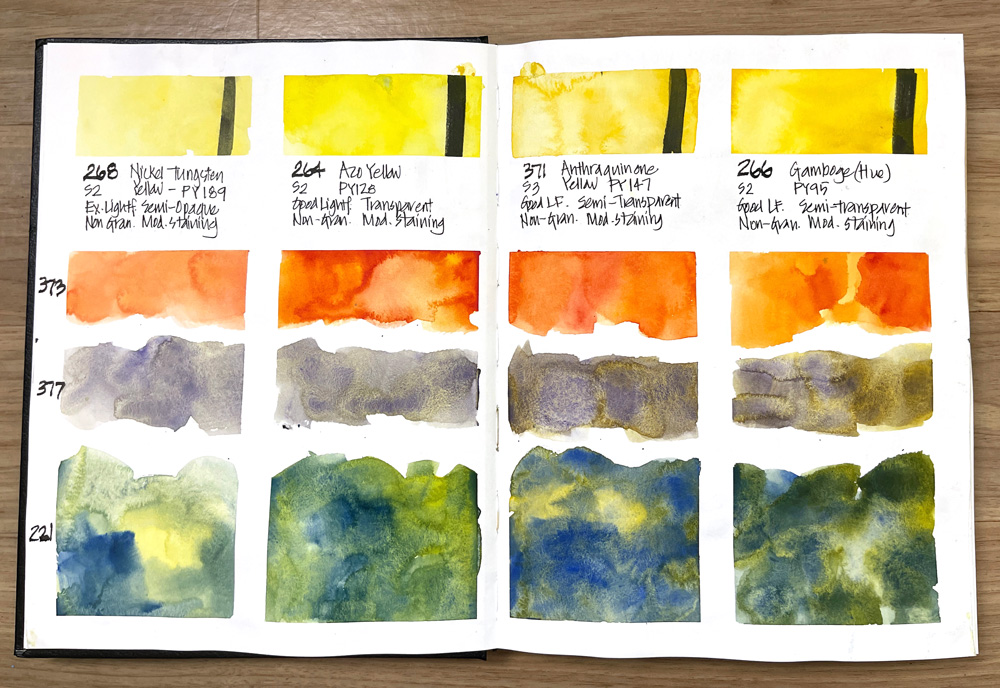 268 Nickel Tungsten
S2 Yellow - PY189
Ex. Lightf. Semi-Opaque
Non Gran. Mod. Staining
264 Azo Yellow
S2 PY128
Good Lightf. Transparent
Non-Gran. Mod. Staining
371 Anthraquinone
S3 Yellow PY147
Good LF. Semi-Transparent
Non-Gran. Mod. Staining
266 Gamboge (Hue)
S2 PY95
Good LF. Semi-transparent
Non-Gran. Mod. Staining
373
377
221